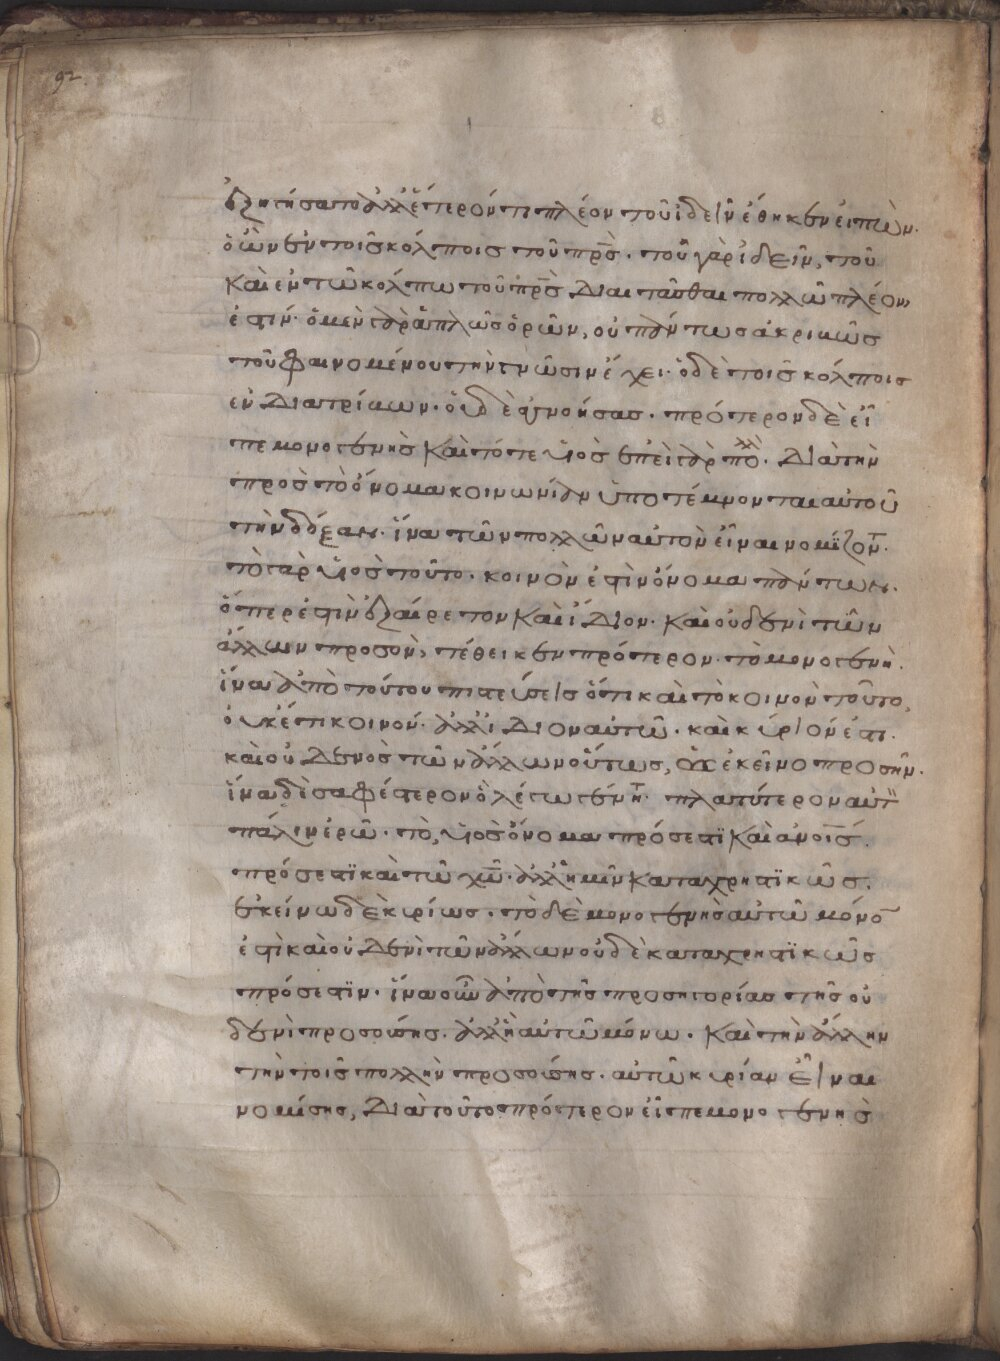 92
ἐζητήσατο ἀλλ' ἕτερόν τι πλέον τοῦ ἰδεῖν ἔθηκεν εἰπὼν·
ὁ ὢν ἐν τοῖς κόλποις τοῦ πρς· τοῦ γὰρ ἰδεῖν, τοῦ
καὶ ἐν τῶ κόλπω τοῦ πρς διαιτᾶσθαι πολλῶ πλέον
ἐστίν· ὁ μὲν γὰρ ἁπλῶς ὁρῶν, οὐ πάντως ἀκριβῶς
τοῦ φαινομένου τὴν γνῶσιν ἔχει· ὁ δὲ τοῖς κόλποις
ἐνδιατρίβων· οὐδὲν ἀγνοήσας· πρότερον δὲ εἶ
πε μονογενὴς καὶ τότε υἱὸς ἐπεὶ γὰρ πολλοὶ· διὰ τὴν
πρὸς τὸ ὄνομα κοινωνίαν ὑποτέμνονται αὐτοῦ
τὴν δόξαν· ἕνα τῶν πολλῶν αὐτὸν εἶναι νομίζον·
τὸ γὰρ υἱὸς τοῦτο· κοινὸν ἐστὶν ὄνομα πάντων·
ὅπερ ἐστὶν ἐξαίρετον καὶ ἴδιον· καὶ οὐδενὶ τῶν
ἄλλων προσὸν, τέθεικεν πρότερον· τὸ μονογενὴ·
ἵνα ἀπὸ τούτου πιστεύσεις ὅτι καὶ τὸ κοινὸν τοῦτο,
οὐκέτι κοινόν· ἀλλ' ἴδιον αὐτῶ· καὶ κύριόν ἐστι·
καὶ οὐδενὸς τῶν ἄλλων οὕτως, ὡς ἐκεῖνο προσῆν·
ἵνα δὲ σαφέστερον ὃ λέγω γένη· πλατύτερον αὐτ
πάλιν ἐρῶ· τὸ, υἱὸς ὄνομα πρόσεστι καὶ ανοις·
πρόσεστι καὶ τῶ χω· ἀλλ' ἡμῖν καταχρηστικῶς·
ἐκείνω δὲ κυρίως· τὸ δὲ μονογενὴς αὐτῶ μόνο
ἐστὶ καὶ οὐδενὶ τῶν ἄλλων οὐδὲ καταχρηστικῶς
πρόσεστιν· ἵνα οὖν ἀπὸ τῆς προσηγορίας τῆς οὐ
δενὶ προσούσης· ἀλλ' ἢ αὐτῶ μόνω· καὶ τὴν ἄλλην
τὴν τοῖς πολλὴν προσούσης· αὐτῶ κυρίαν εἶναι
νομίσης, διὰ τοῦτο πρότερον εἶπε μονογενὴς